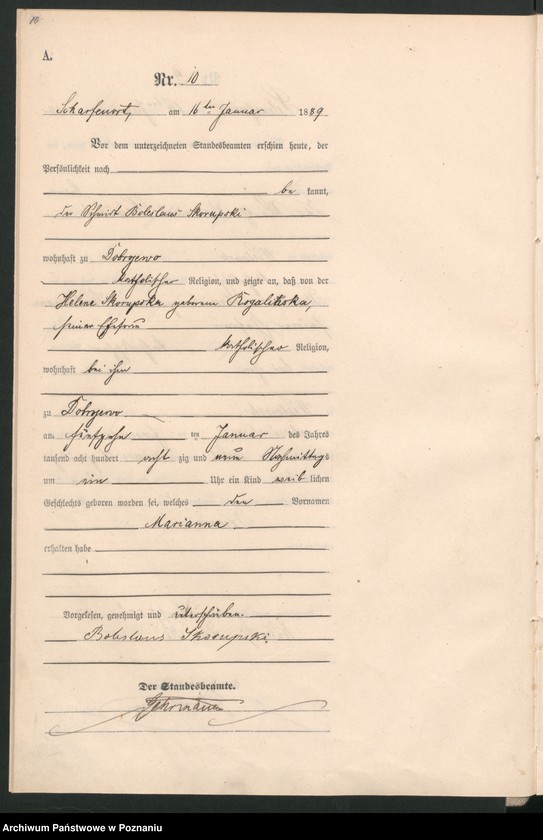 10
A.
Nr. 10
Scharfenort, am 16 ten Januar 1889
Vor dem unterzeichneten Standesbeamten erschien heute, der
Persönlichkeit nach
be kannt,
der Schmidt Boleslaus Skorupski
wohnhaft zu Dobrojewo
katholischer Religion, und zeigte an, daß von der
Helene Skorupska geborenen
seiner Ehefrau
katholischer Religion,
wohnhaft bei ihm
zu Dobrojewo
am fünfzehn ten Januar des Jahres
tausend acht hundert acht zig und neun Nachmittags
um ein Uhr ein Kind weib lichen
Geschlechts geboren worden sei, welches den Vornamen
Marianna
erhalten habe
Vorgelesen, genehmigt und unterschrieben.
Boleslaus Skorupski.
Der Standesbeamte.
Archiwum Państwowe w Poznaniu